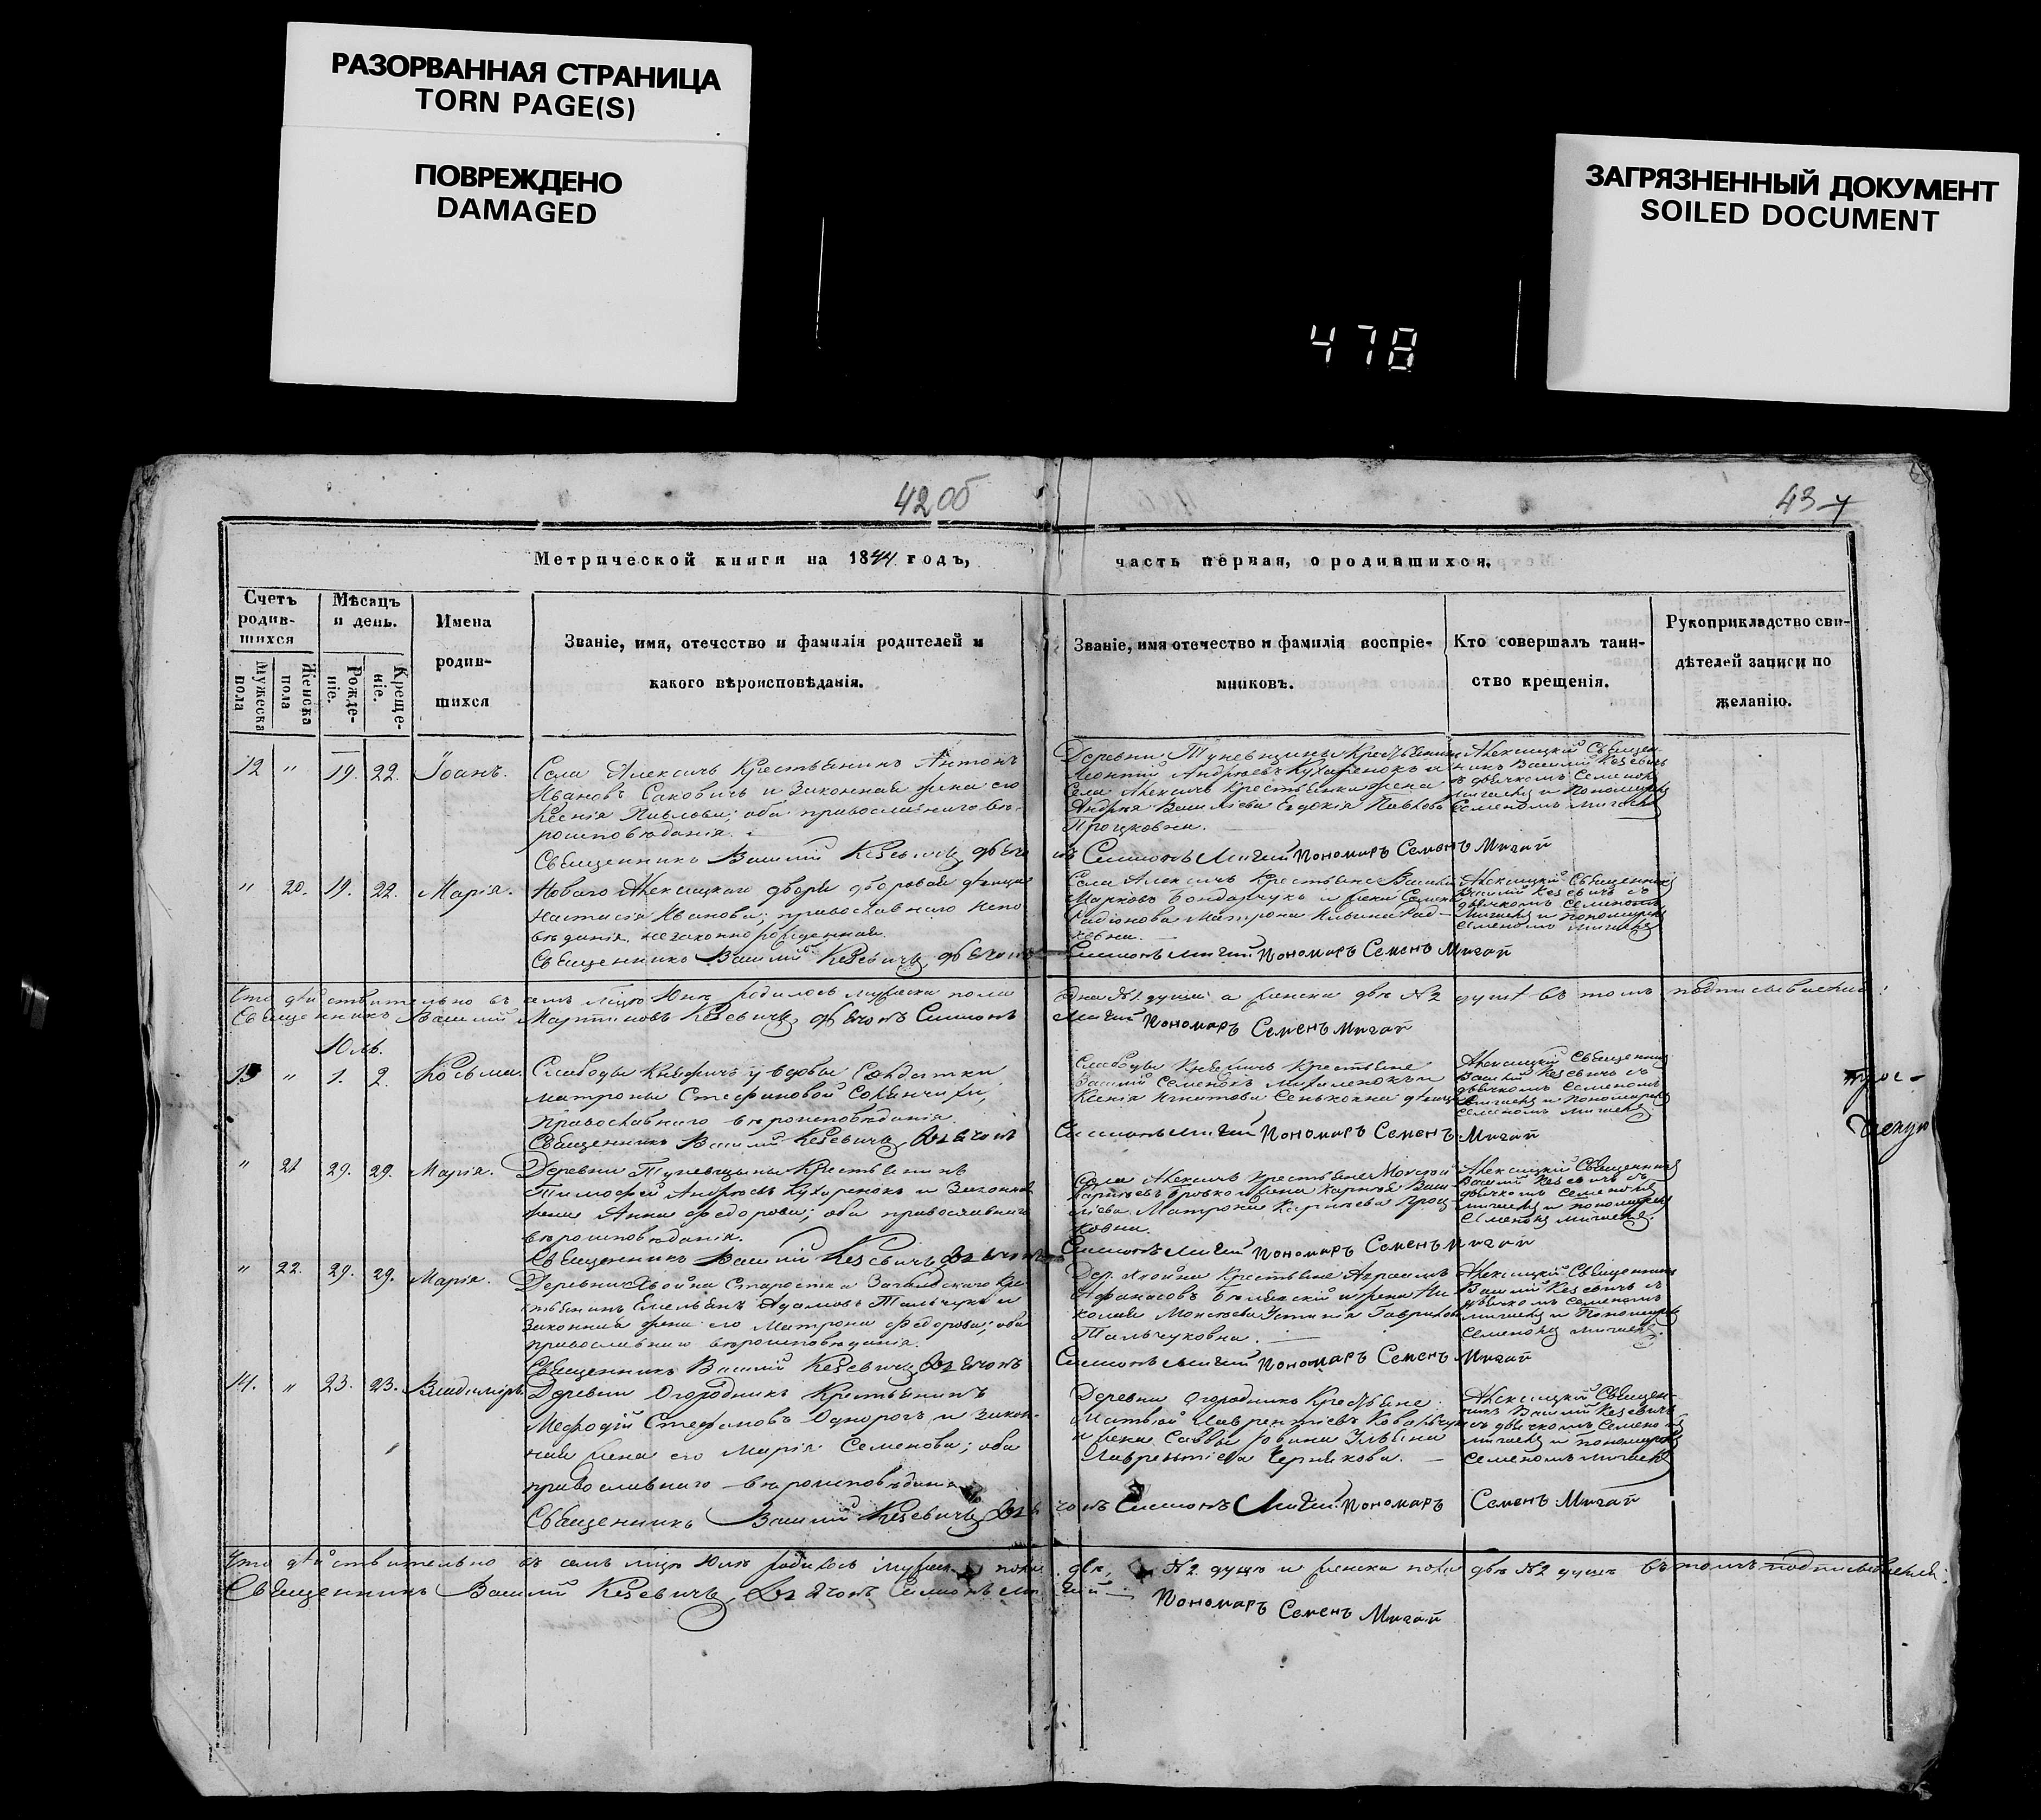 РАЗОРВАННАЯ СТРАНИЦА
TORN PAGE(S)
ПОВРЕЖДЕНО
DAMAGED
ЗАГРЯЗНЕННЫЙ ДОКУМЕНТ
SOILED DOCUMENT
478
42 об
43
Метрической книги на 1844 годъ,
часть первая, о родившихся.
Счетъ родив-шихся
Мѣсяцъ и день.
Имена родив-шихся
Званіе, имя, отчество и фамилія родителей и
какого вѣроисповѣданія.
Званіе, имя отечество и фамилія воспріе-
мниковъ.
Кто совершалъ таин-
ство крещенія.
Рукоприкладство сви-
дѣтелей записи по
желанію.
Мужеска пола
Женска пола
Рожде-ніе.
Креще-ніе.
12 " 19. 22. Іоанъ.
Села Алексичъ Крестьянинъ Антонъ
Ивановъ Саковичъ и Законная жена его
Ксенія Павлова; оба православнаго вѣ-
роисповѣданія.
Священникъ Василій Кезевичъ, дьячо
Деревни Туневщины Крестьянинъ
Леонтій Андреевъ Кухаренокъ и
Села Алексичъ Крестьянка жена
Андрея Василіева Евдокія Павлова
Процковна.
къ Симонъ Мигай Пономаръ Семенъ Мигай
Алексицкій Священ-
никъ Василій Кезевичъ
съ дьячкомъ Семеномъ
Мигаемъ и Пономаремъ
Семеномъ Мигаемъ
" 20. 19. 22. Марія.
Новаго Алексицкаго двора дворовая дѣвица
Настасія Иванова; православнаго испо
вѣданія. незаконнорожденная.
Священникъ Василій Кезевичъ, дьячокъ
Села Алексичъ Крестьяне Василій
Марковъ Бондарчукъ и жена Семена
Радіонова Матрона Ильина Рад-
Симонъ Мигай Пономаръ Семенъ Мигай
Алексицкій Священникъ
Василій Кезевичъ съ
дьячкомъ Семеномъ
Мигаемъ и пономаремъ
Семеномъ Мигаемъ
Что дѣйствительно въ семъ мѣсяцѣ Юнѣ родилось мужеска пола
одна №1. душа а женска двѣ №2 душѣ въ томъ подписываемся:
Священникъ Василій Мартиновъ Кезевичъ, дьячокъ Симонъ
Мигай Пономаръ Семенъ Мигай
Юль.
13 " 1. 2. Косьма.
Слободы Княжичъ у вдовы Солдатки
Матроны Стефановой
Православнаго вѣроисповѣданія.
Священникъ Василій Кезевичъ, дьячокъ
Слободы Княжичъ Крестьяне
Василій Семеновъ Михаленокъ и
Ксенія Игнатова Сеньковна дѣвица
Симонъ Мигай Пономаръ Семенъ Мигай
Алексицкій Священникъ
Василій Кезевичъ съ
дьячкомъ Семеномъ
Мигаемъ и пономаремъ
Семеномъ Мигаемъ
" 21 29. 29. Марія.
Деревни Туневщины Крестьянинъ
Тимофей Андреевъ Кухаренокъ и Законная
жена Анна Федорова; оба православнаго
вѣроисповѣданія.
Священникъ Василій Кезевичъ дьячокъ
Села Алексичъ Крестьяне Моисей
Матрона Карпіева Проц-
ковна.
Симонъ Мигай Пономаръ Семенъ Мигай
Алексицкій Священникъ
Василій Кезевичъ съ
дьячкомъ Семеномъ
Мигаемъ и пономаремъ
Семеномъ Мигаемъ.
" 22. 29. 29. Марія.
Деревни Хвойна Старостка Крес-
тьянинъ Емельянъ Адамовъ Тальчукъ и
Законная жена его Матрона Федорова; оба
православнаго вѣроисповѣданія.
Священникъ Василій Кезевичъ, дьячокъ
Дер. Хвойна Крестьяне Авраамъ
Афанасовъ и жена Ни-
колая Моисеева Устинія Гаврилова
Тальчуковна.
Симонъ Мигай Пономаръ Семенъ Мигай
Алексицкій Священникъ
Василій Кезевичъ съ
дьячкомъ Семеномъ
Мигаемъ и Пономаремъ
Семеномъ Мигаемъ.
14. " 23. 23. Владиміръ.
Деревни Огородникъ Крестьянинъ
Мефодій Стефановъ Однорогъ и Закон-
ная жена его Марія Семенова; оба
православнаго вѣроисповѣданія
Священникъ Василій Кезевичъ, дья
Деревни Огородникъ Крестьяне:
Матвій Лаврентіевъ Ковальчукъ
и жена Саввы
Лаврентіева Чернякова.
чокъ Симонъ Мигай. Пономаръ Семенъ Мигай
Алексицкій Священ-
никъ Василій Кезевичъ
съ дьячкомъ Семеномъ
Мигаемъ и пономаремъ
Семеномъ Мигаемъ
Что дѣйствительно въ семъ мѣсяцѣ Юлѣ родилось мужеска пола
двѣ, №2 душѣ и женска пола двѣ №2 душѣ въ томъ подписываемся:
Священникъ Василій Кезевичъ, дьячокъ Симонъ Ми
гай
Пономаръ Семенъ Мигай